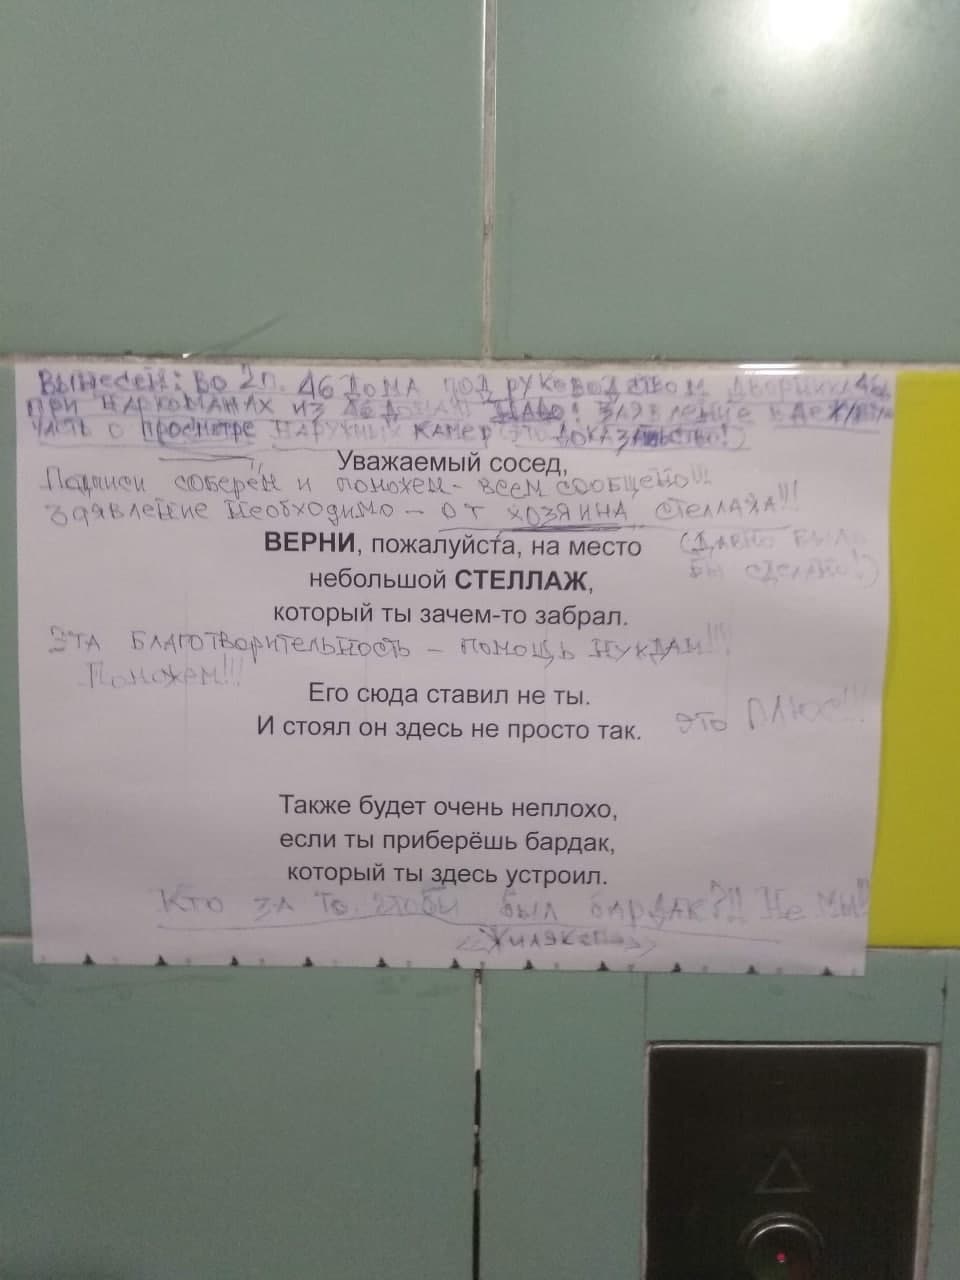 Вынесен: во 2п. 46 дома под руководством дворника 46д.
при наркоманах из дома! заявление в дежурн.
часть о просмотре наружных камер (это доказательство!)
Уважаемый сосед,
Подписи соберём и поможем - всем сообщено!!!
Заявление необходимо - от хозяина стеллажа!!!
ВЕРНИ, пожалуйста, на место
(Давно было
бы сделано!)
небольшой СТЕЛЛАЖ,
который ты зачем-то забрал.
Эта благотворительность - помощь нуждам!!!
Поможем!!!
Его сюда ставил не ты.
И стоял он здесь не просто так.
это плюс!!!
Также будет очень неплохо,
если ты приберёшь бардак,
который ты здесь устроил.
Кто за то, чтобы был бардак?!! Не мы!!